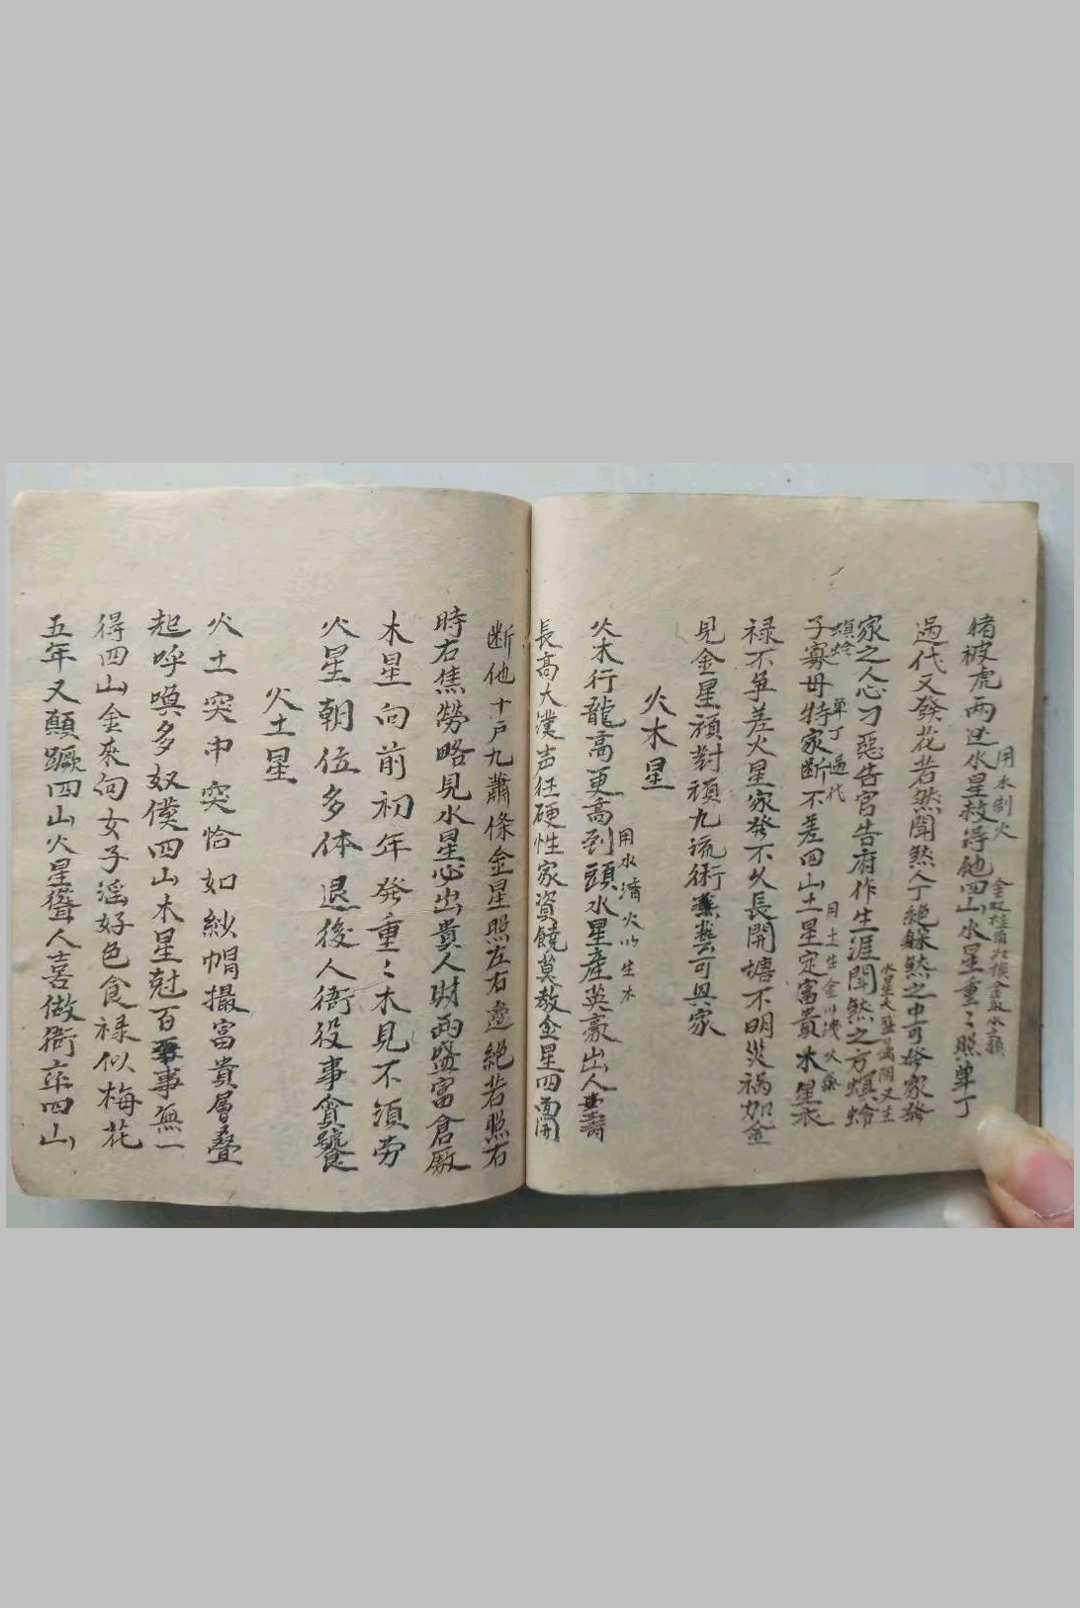 用水制火
猪被虎两边水星救得他四山水星重〻照單丁
過代又發花若然聞煞人丁絕躲煞之中可發家發
家之人心刁惡告官告府作生涯聞然之方螟蛉
螟蛉
單丁過代
用土生金以洩火氣
子寡母特家断不差四山土星定富貴水星衣
禄不争差火星家發不久長開塘不明災禍加金
見金星須對頑九流術藝可興家
火木星
用水濟火以生木
火木行龍高更高到頭水星產英豪出人壽
長高大漢声狂硬性家資饒莫教金星四面開
断他十戶九蕭條金星照左右邊絕若照右
時右焦勞略見水星必出貴人財両盛富倉廠
木星向前初年發重〻木見不須劳
火星朝位多体退後人衙役事貪饕
火土星
火土突中突恰如紗帽撮富貴層叠
起呼喚多奴僕四山木星尅百事無一
得四山金來向女子滛好色食禄似梅花
五年又顛蹶四山火星聳人喜做衙卒四山